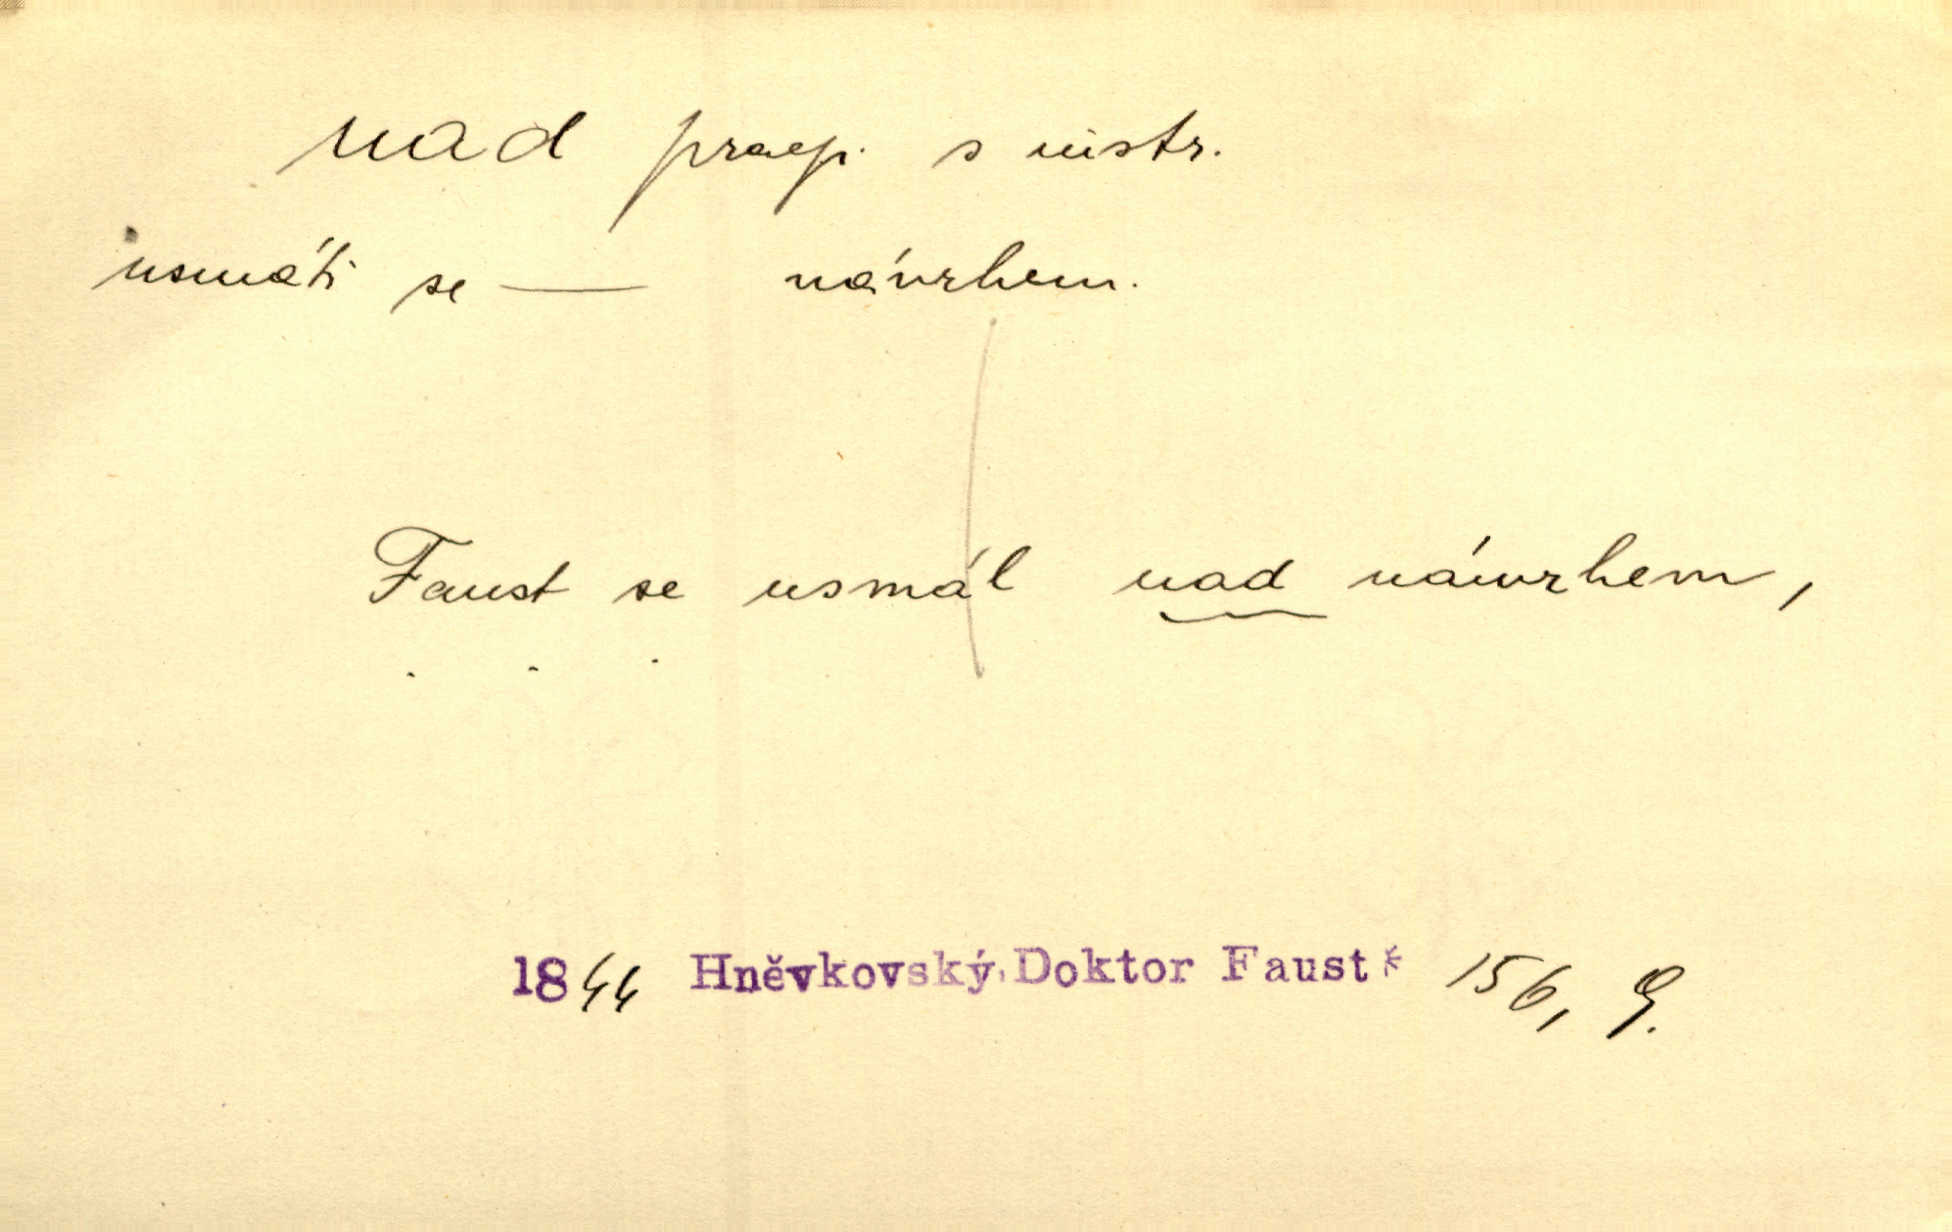 nad praep. s instr.
usmáti se — návrhem.
Faust se usmál nad návrhem,
. . .
1844 Hněvkovský, Doktor Faust* 156, 9.